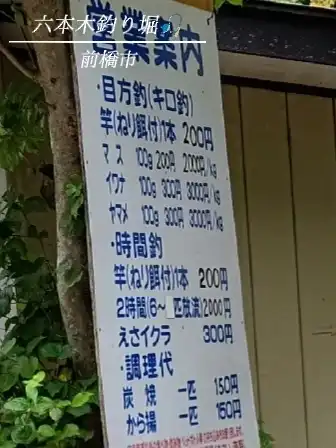 六本木釣り堀
前橋市
営業案内
・目方釣(キロ釣)
竿(ねり餌付)1本 200円
マス 100g 200円 2000円/kg
イワナ 100g 300円 3000円/kg
ヤマメ 100g 300円 3000円/kg
・時間釣
竿(ねり餌付)1本 200円
2時間(6～_匹放流)2000円
えさイクラ 300円
・調理代
炭焼 一匹 150円
から揚 一匹 150円